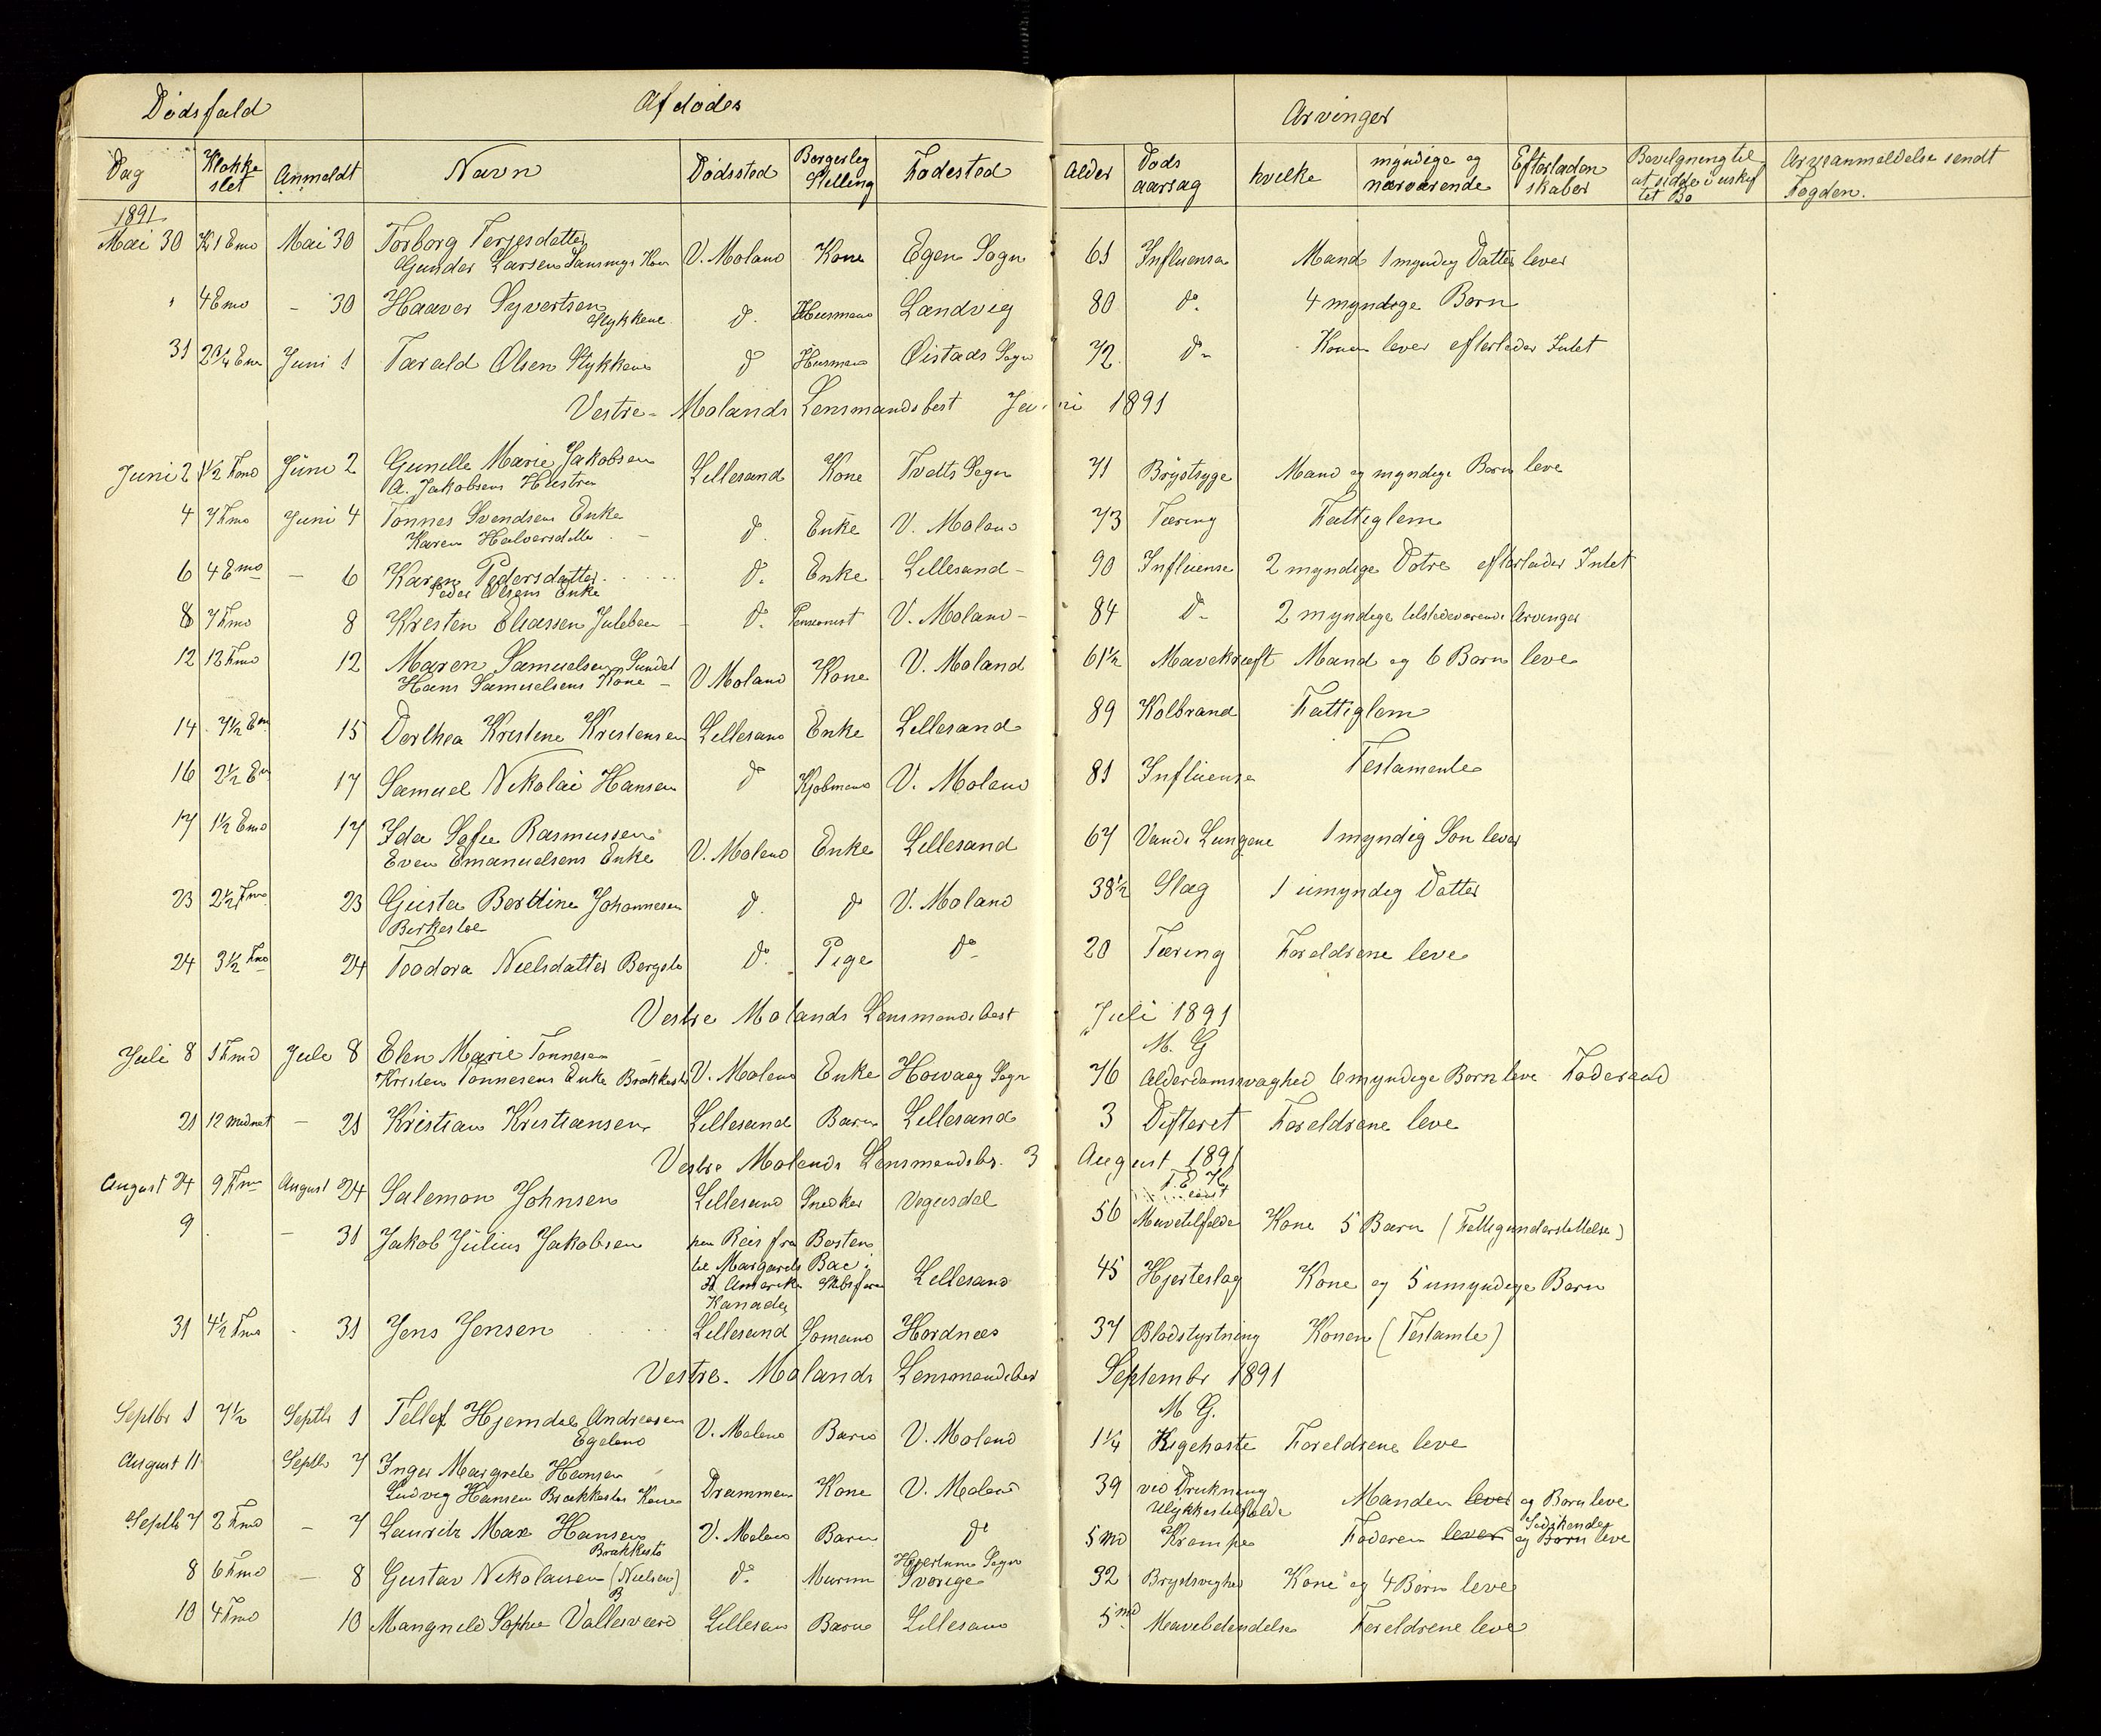 Dødsfald Afdødes Arvinger
Dag Klokke slet Anmeldt Navn Dødssted Borgerleg Stelling Fødested Alder Døds aarsag hvilke myndige og nærværende Efterladen skaber Bevelgning til at sidde i uskif tet Bo Arveanmeldelse sendt Fogden.
1891
Mai 30 Kl 1 Emd Mai 30 Torborg Terjesdatter V. Moland Kone Egen Sogn 61 Influensa Mand 1 myndig Datter lever
Gunder Larsen Kone
" 4 Emd – 30 Haaver Syvertsen Stykkene do. Husmand Landvig 80 do. 4 myndige Børn
31 Juni 1 Tarald Olsen Stykkene do Husmand Øistads Sogn 72. do. Konen lever efterlader Intet
Vestre-Molands Lensmandsbest Juni 1891
Juni 2 Juni 2 Gunelle Marie Jakobsen Lillesand Kone Tvedts Sogn 71 Brystsyge Mand og myndige Børn leve
A. Jakobsens Hustru
4 7 Fmd Juni 4 Tønnes Svendsens Enke do. Enke V. Moland 73 Tæring Fattiglem
Karen Halvorsdatter
6 4 Emd – 6 Karen Pedersdatter do. Enke Lillesand 90 Influensa 2 myndige Døtre efterlader Intet
Peder Olsens Enke
8 7 Fmd 8 Kresten Eliassen do. Pensionist V. Moland 84 do. 2 myndige tilstedeværende Arvinger
12 12 Fmd 12 Maren Samuelsen Sundet V Moland Kone V. Moland 61½ Mavekræft Mand og 6 Børn leve
Hans Samuelsens Kone
14 7½ Em 15 Dorthea Kristine Kristensen Lillesand Enke Lillesand 89 Kolbrand Fattiglem
16 2½ Em 17 Samuel Nikolai Hansen do Kjøbmand V. Moland 81 Influensa Testamente
17 1½ Emd 17 Ida Sofie Rasmussen V. Moland Enke Lillesand 67 Vand i Lungene 1 myndig Søn lever
Even Emanuelsens Enke
23 2½ Fmd 23 Gusta Berthine Johannesen do. do V. Moland 38½ Slag 1 umyndig Datter
Birkestøl
24 3½ Fmd 24 Toodora Nielsdatter do. Pige do 20 Tæring Foreldrene leve
Vestre Molands Lensmandsbest Juli 1891
M. G
Juli 8 1 Fmd Juli 8 Elen Marie Tønnesen V. Moland Enke Høvaag Sogn 76 Alderdomsvaghed 6 myndige Børn leve Føderaad
Kristen Tønnesens Enke Brækkestø
21 12 midnat – 21 Kristian Kristiansen Lillesand Barn Lillesand 3 Difteret Foreldrene leve
Vestre Molands Lensmandsbs. 3 August 1891
August 24 9 Fmd August 24 Salemon Johnsen Lillesand Snedker Vegusdal 56 Mavetilfælde Kone 5 Børn (Fattigunderstøttelse)
9 – 31 Jakob Julius Jakobsen paa Reis fra Boston
til Margarets Bai i
Amerika Skibsfører Lillesand 45 Hjerteslag Kone og 5 umyndige Børn
Kanada
31 4½ Fmd 31 Jens Jensen Lillesand Sømand Hordnees 37 Blodstyrtning Konen (Testamte)
Vestre-Molands Lensmandsbest Septembr 1891
M G.
Septbr 1 7½ Septbr 1 Tellef Hjemdal Andreasen V. Moland Barn V. Moland 1¼ Kigehoste Foreldrene leve
Egeland
August 11 Septbr 7 Inger Margrete Hansen Drammen Kone V. Moland 39 ved Drukning Manden lever og Børn leve
Ludvig Hansen Brækkestøs Kone Ulykkestilfælde
Septbr 7 2 Fmd – 7 Lauritz Max Hansen V. Moland Barn do 5 Md Krampe Faderen lever og Børn Sødskende leve
Brækkestø
8 6 Fmd – 8 Gustav Nikolaisen (Nielsen) do. Murer Sogn Sverige 32 Brystsvaghed Kone og 4 Børn leve
10 4 Fmd 10 Mangnild Sophie Vallesverd Lillesand Barn Lillesand 5 md Mavebetændelse Foreldrene leve